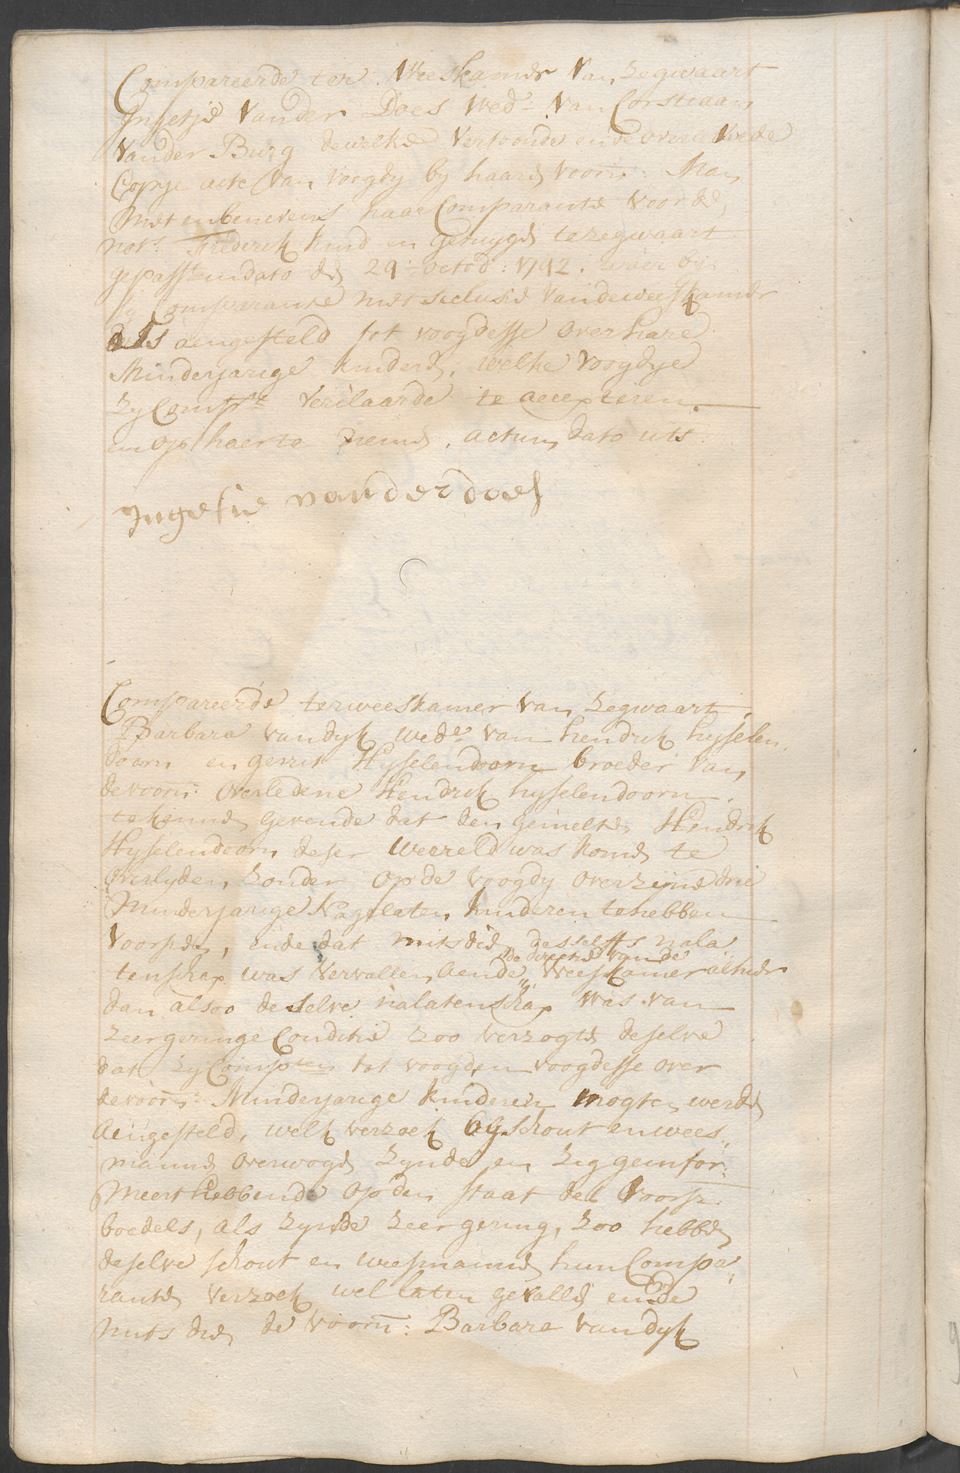 Compareerde ter Weeskamer Van Zegwaart
Ingetje Vander Does Wed:e Van Corstiaan
Vander Burg dewelke Vertoonde ende overleverde
Copye acte Van voogdy by haaren voorn: Man
met en benevens haar Comparante voor den
not:s Frederik kind en getuygen te zegwaart
gepass:t in dato den 29:e octob: 1712. waer by
sy Comparante met seclusie van de weeskamer
als aengesteld tot voogdesse over hare
Minderjarige kinderen, welke voogdye
Zy Comp:te Verclaarde te accepteren
en op haer te nemen, actum dato uts.
Ingetie vander does
Compareerde ter weeskamer Van Zegwaart
Barbara van dyk wed:e van hendrik hysselen,
doorn en gerrit Hysselendoorn broeder van
de voorn: overledene Hendrik hysselendoorn,
te kennen gevende dat den gemelten Hendrik
Hysselendoorn deser Wereld was komen te
overlyden, zonder op de voogdy over zyne drie
Minderjarige Nagelaten kinderen te hebben
voorsien, ende dat mitsdien desselfs nala
de directie van de
tenschap was vervallen aende Weeskamer alhier
dan alsoo deselve nalatenschap was van
zeer geringe Conditie zoo verzogten deselve
dat zy Comp:ten tot voogd en voogdesse over
de voorn: Minderjarige kinderen mogten werden
aengesteld, welk verzoek by schout en wees,
mannen overwogen zynde en zig geinfor:
meert hebbende op den staat des voorsz:
boedels, als zynde zeer gering, zoo hebben
deselve schout en weesmannen hun Compa,
ranten verzoek wel laten gevallen ende
mits dien de voorn: Barbara van dyk